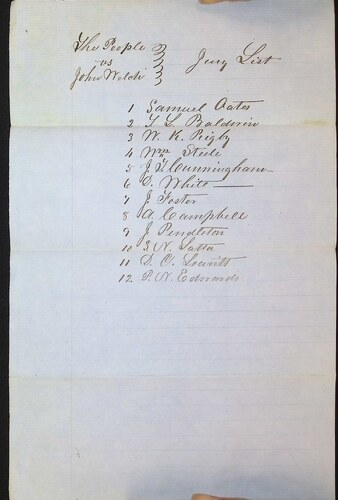 The People
vs
John Welch
Jury List
1 Samuel Oates
2 T L Baldwin
3 W. K. Rigby
4 Wm Steele
5 J. Cunningham
6 D. White
7 J Foster
8 A. Campbell
9 J Pendleton
10 N. Latta
11 D. C.
12. P. N. Edwards